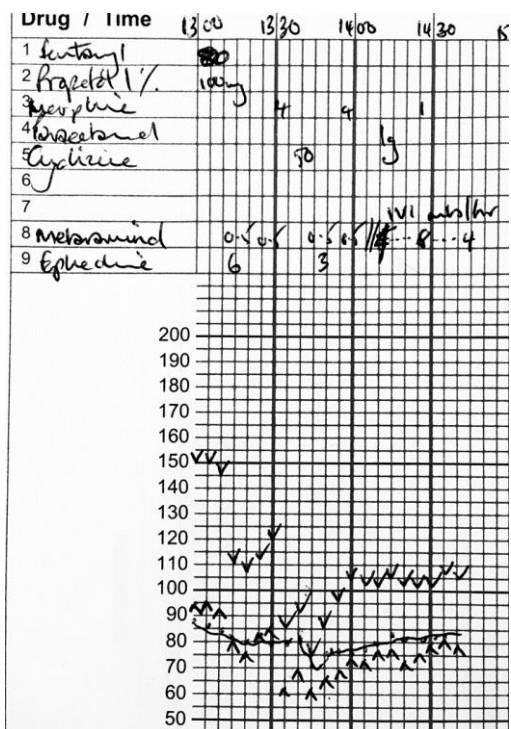 Drug / Time 13 00 13 30 14 00 14 30 15
1 Fentanyl
2 Propofol 1% 100mg
3 Morphine 4 4 1
4 Paracetamol 1g
5 Cyclizine 50
6
7 IVI mls/hr
8 Metaraminol 0.5 0.5 0.5 0.5 // 8 4
9 Ephedrine 6 3
200
190
180
170
160
150
140
130
120
110
100
90
80
70
60
50